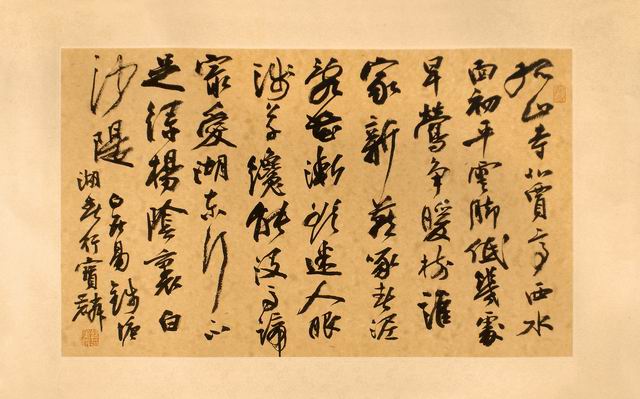 孤山寺北賈亭西水
面初平雲脚低幾處
早鶯争暖樹誰
家新燕啄春泥
亂花漸欲迷人眼
淺草纔能没馬蹄
最愛湖東行不
足綠楊陰裏白
沙隄
白居易錢塘
湖春行寶麟